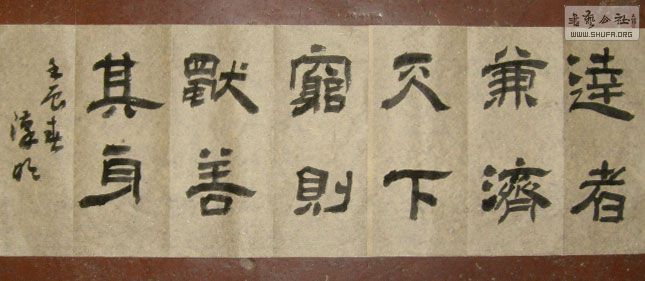 達者
兼濟
天下
窮則
獨善
其身
壬辰春
書藝公社
WWW.SHUFA.ORG